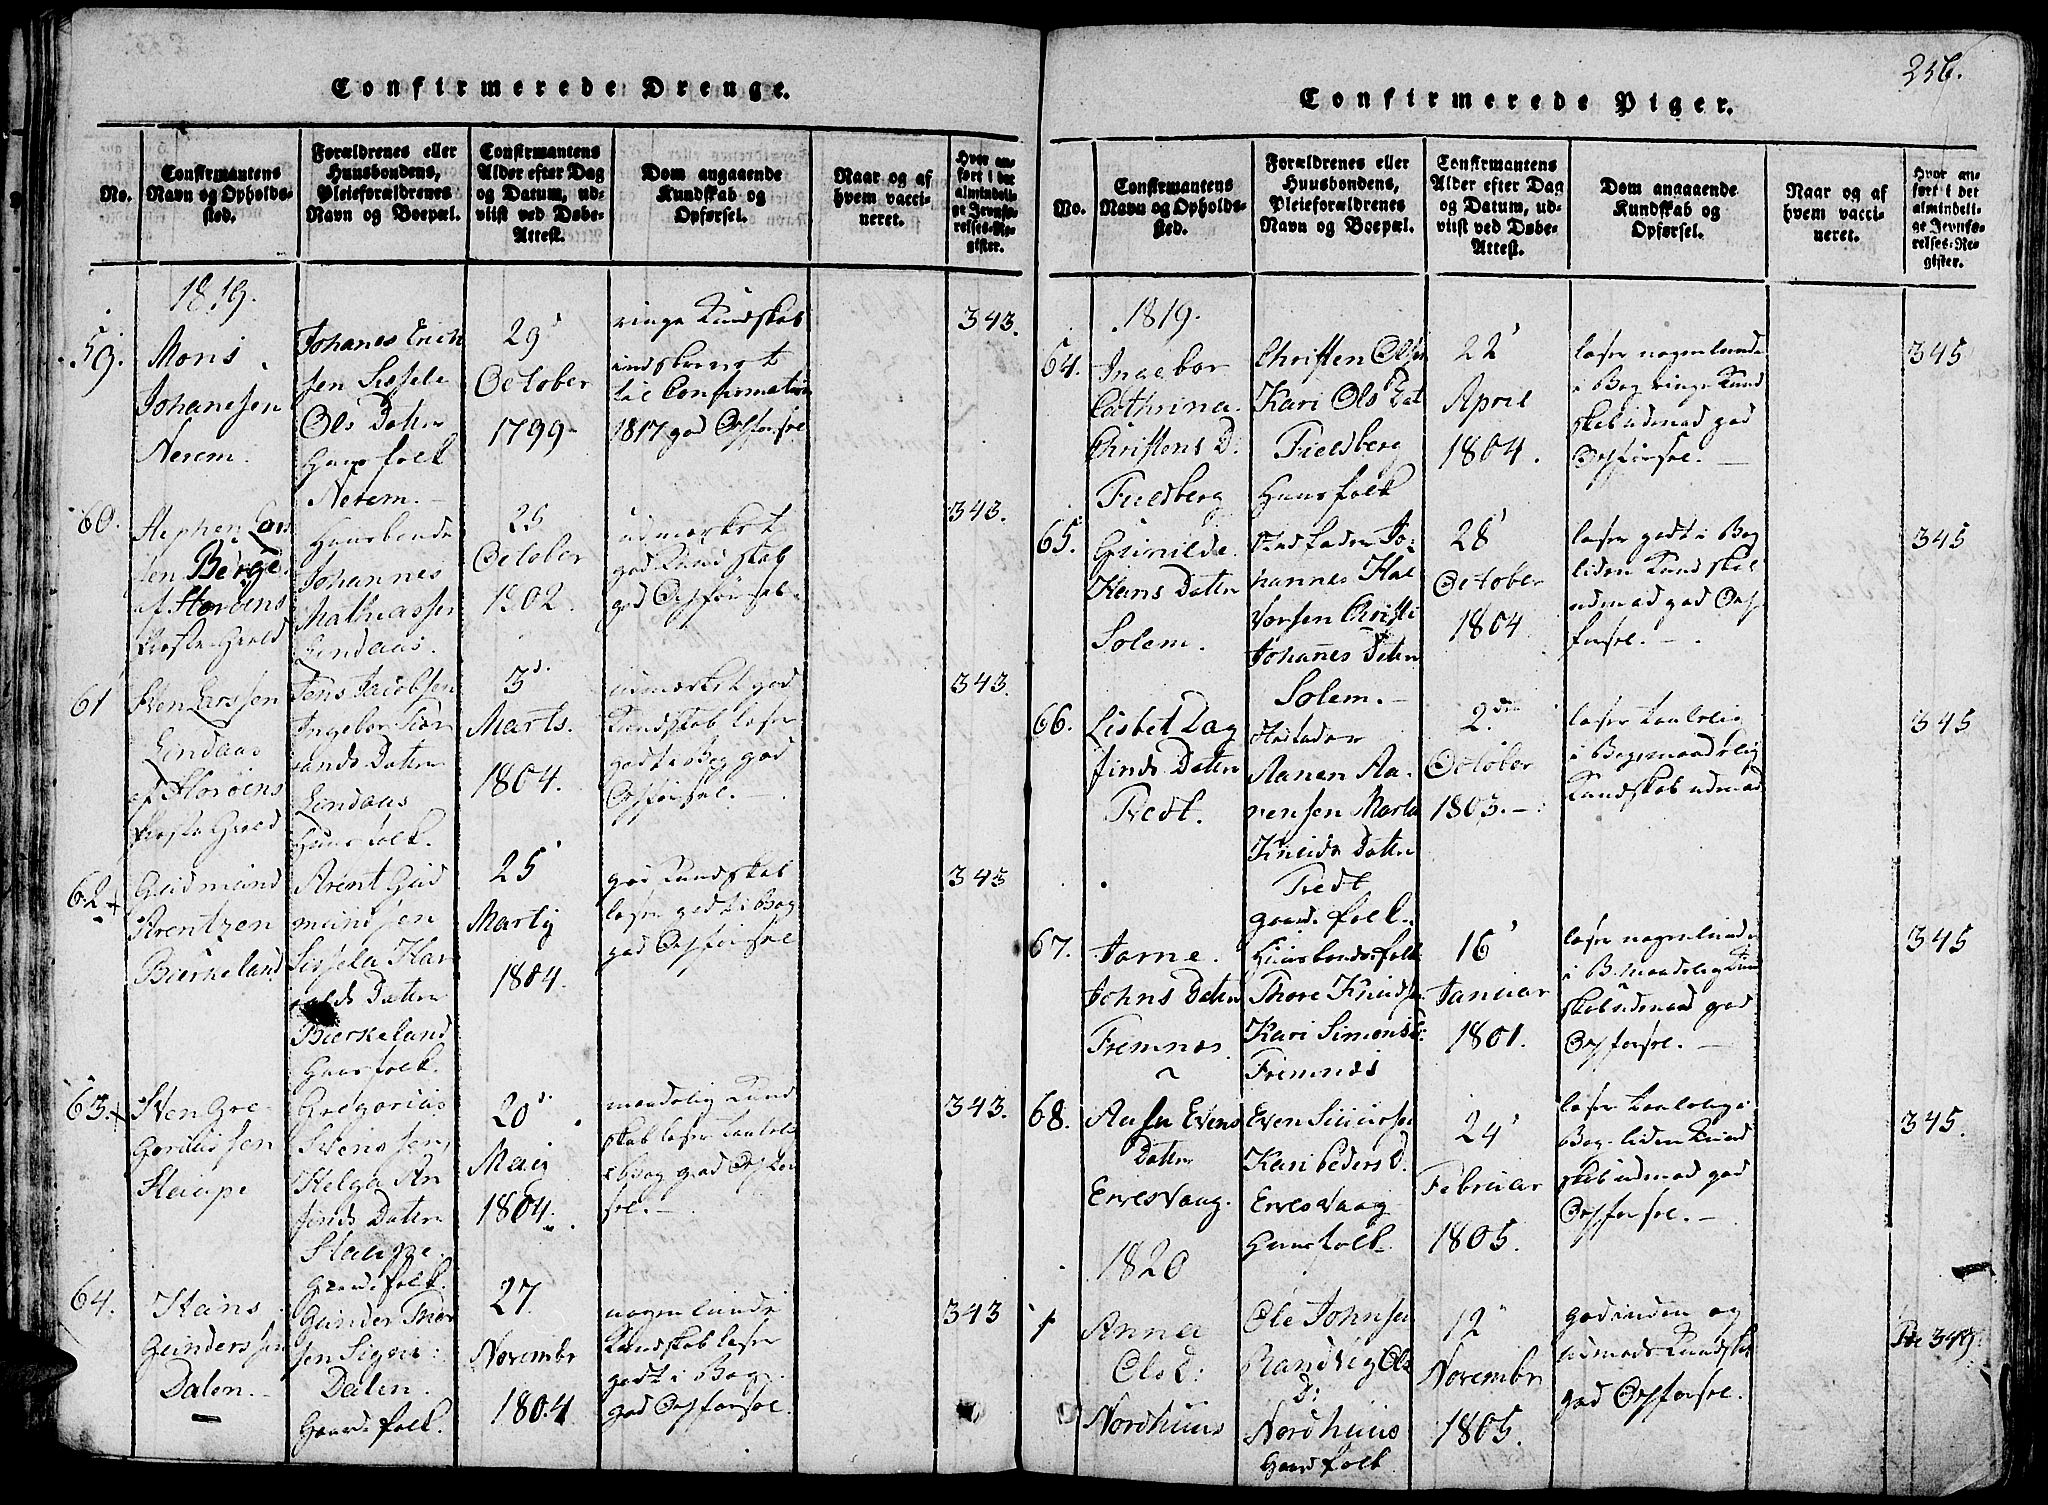 256.
Confirmerede Drenge.
No.
Confirmantens
Navn og Opholds-
sted.
Forældrenes eller
Huusbondens,
Pleieforældrenes
Navn og Boepæl.
Confirmantens
Alder efter Dag
og Datum, ud-
viist ved Døbe-
Attest.
Dom angaaende
Kundskab og
Opførsel.
Naar og af
hvem vacci-
neret.
Hvor an-
ført i det
almindeli-
ge Jevnfø-
relses-Re-
gister.
1819.
59.
Mons
Johanesen
Nerem.
Johanes Erich
sen Sissele
Ols Datter
Huusfolk
Nerem.
29
October
1799
ringe Kundskab
til Confirmation
1817 god Opførsel
343.
60.
Stephen Lars
sen Berge
af Storöens
Præste Gield
Huusbonde
Johannes
Mathiassen
Lindaas.
25
October
1802.
udmærket
god Kundskab
god Opførsel.
343.
61
Sven Larssen
Lindaas
af Storöens
Præste Gield
Jens Jacobsen
Ingebor
Datter
Lindaas
Huusfolk.
3d
Marts.
1804.
udmærket god
Kundskab læser
godt i Bog god
Opførsel.
343.
62
Gudmund
Arentzen
Birkeland
Arent Gud
mundsen
Sissela Har
alds Datter
Birkeland
Huusfolk.
25
Marty
1804.
god Kundskab
læser godt i Bog
god Opførsel
343
63.
Sven Gre
goriussen
Staupe
Gregorius
Svensen,
Helga An
finds Datter
Staupe.
Gaardfolk.
20d
Maij
1804.
maadelig Kund
skab læser
i Bog god Opfør
sel.
343.
64.
Hans
Gunderssen
Dalen.
Gunder Thor
sen Signe
Dalen.
Gaardfolk.
27.
Novembr
1804
nogenlunde
Kundskab læser
godt i Bog.
god Opførsel.
343
Confirmerede Piger.
No.
Confirmantens
Navn og Opholds-
sted.
Forældrenes eller
Huusbondens,
Pleieforældrenes
Navn og Boepæl.
Confirmantens
Alder efter Dag
og Datum, ud-
viist ved Døbe-
Attest.
Dom angaaende
Kundskab og
Opførsel.
Naar og af
hvem vacci-
neret.
Hvor an-
ført i det
almindeli-
ge Jevnfø-
relses-Re-
gister.
1819.
64.
Ingebor
Cathrina
Christens D:
Fieldberg
Christen Olsen
Kari Ols Dat
Fieldberg
Huusfolk
22
April
1804.
læser nogenlunde
i Bog ringe Kund
skab udenad god
Opførsel.
345
65.
Gunilde
Hans Datter
Solem.
Stedfader Jo-
hannes Hal
vorsen Christi
Johannes Datter
Solem.
28
October
1804
læser godt i Bog
liden Kundskab
udenad god Op
førsel.
345
66.
Lisbet Dag
finds Datter
Tredt.
Stedfader
Aanen Aa-
rensen Marta
Knuds Datter
Tredt
Gaardfolk.
2den
October
1803.
læser taalelig
i Bog maadelig
Kundskab udenad
345
67.
Jorne
Johns Datter
Fremnæs
Huusbondsfolk
Thore Knudsen
Kari Simonsd:
Fremnæs
16
Januar
1801.
læser nogenlunde
i B. maadelig Kund
skab udenad god
Opførsel.
345
68.
Aasa Evens
Datter
Ervesvaag.
Even Siursen
Kari Peders D.
Ervesvaag
Huusfolk
24
Februar
1805.
læser taalelig i
Bog liden Kund
skab udenad god
Opførsel.
345.
1820
1
Anna
Ols D:
Nordhuus
Ole Johnsen
Randvig Ols
D:
Nordhuus
Gaardfolk
12
Novembr
1805.
god inden og
udenads Kundskab
god Opførsel.
349.